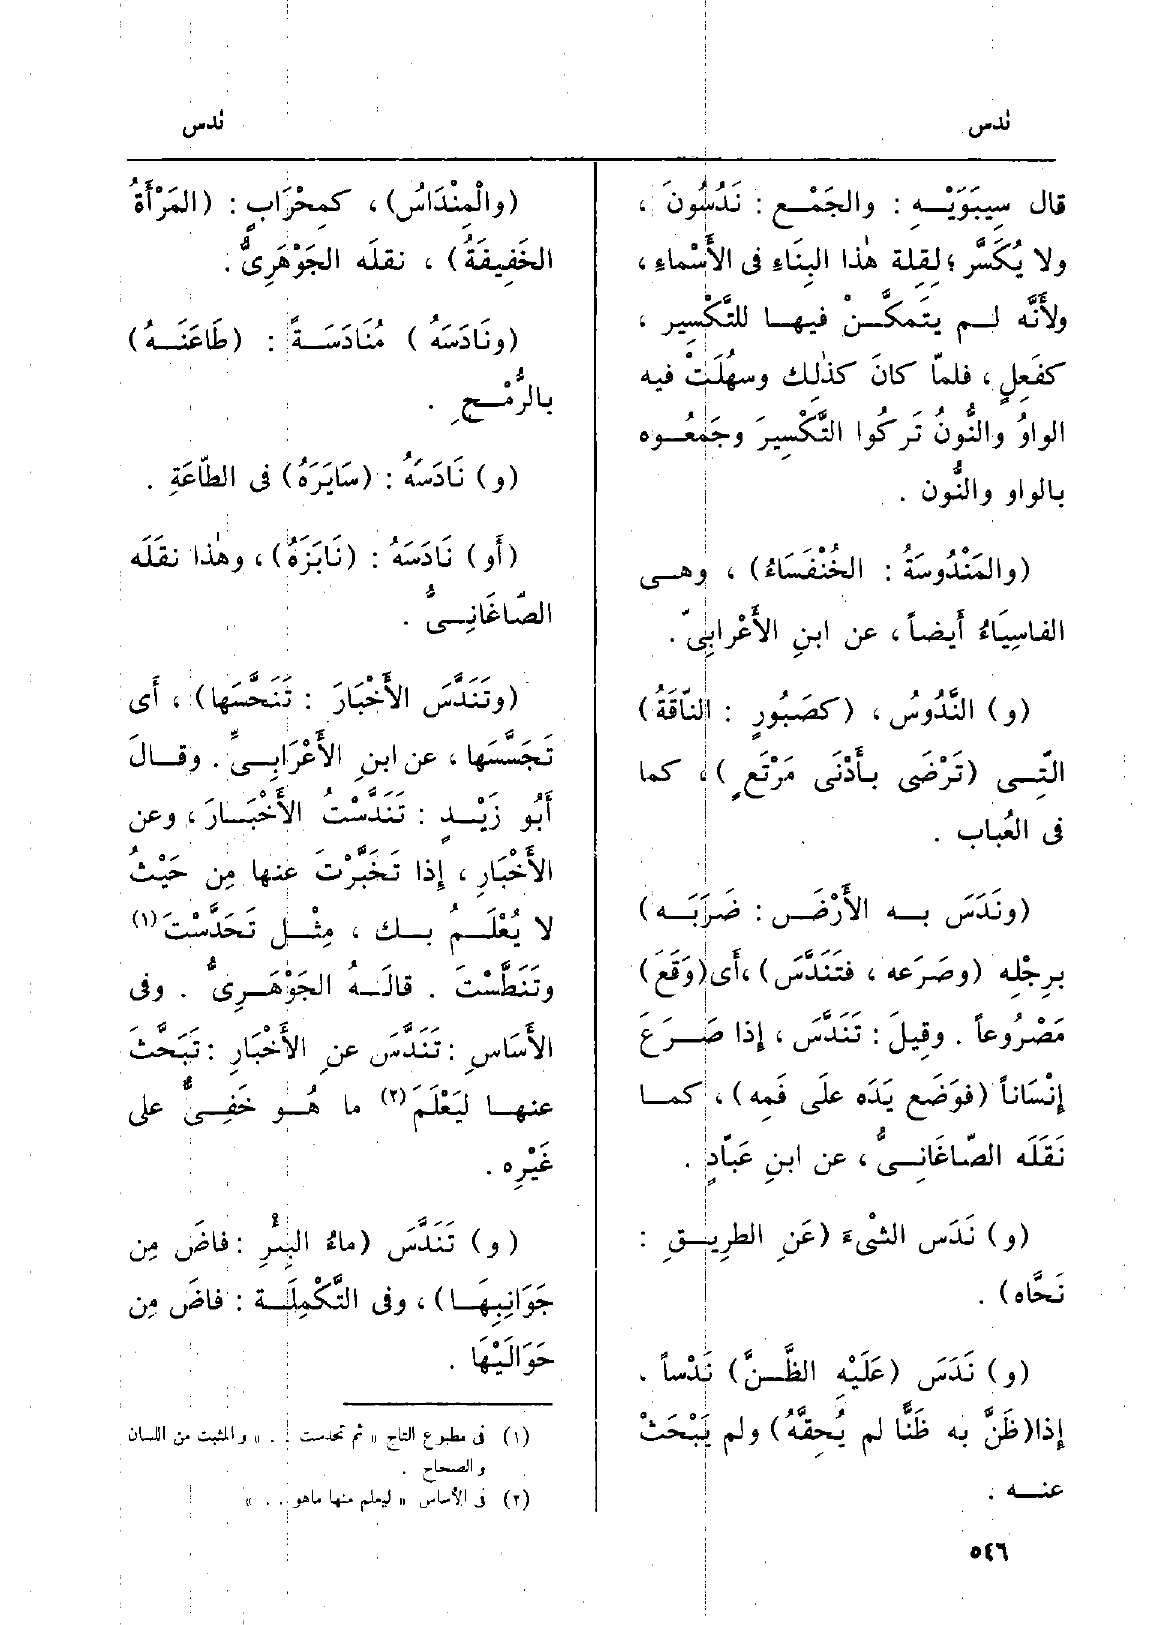 ندس
ندس
قال سِيبَوَيْهِ : والجَمْع : نَدُسُونَ ،
ولا يُكَسَّر ؛ لقِلة هٰذا البِنَاءِ فى الأَسْماءِ ،
ولأَنَّه لم يتَمكَّنْ فيها للتَّكْسِير ،
كفَعِلٍ ، فلمّا كانَ كذٰلِك وسهُلَتْ فيه
الواوُ والنُّونُ تَركُوا التَّكْسِيرَ وجَمَعُوه
بالواو والنُّون .
(والمَنْدُوسَةُ : الخُنْفَسَاءُ) ، وهى
الفاسِيَاءُ أَيضاً ، عن ابنِ الأَعْرابِىّ .
(و) النَّدُوسُ ، (كصَبُورٍ : النّاقَةُ)
التِى (تَرْضَى بأَدْنَى مَرْتَعٍ) ، كما
فى العُباب .
(ونَدَسَ به الأَرْضَ : ضَرَبَه)
برِجْلِه (وصَرَعه ، فتَنَدَّسَ) ، أَى (وَقَعَ)
مَصْرُوعاً . وقِيلَ : تَنَدَّسَ ، إِذا صَرَعَ
إِنْسَاناً (فوَضَع يَدَه علَى فَمِه) ، كما
نَقَلَه الصّاغَانِىُّ ، عن ابنِ عَبّادٍ .
(و) نَدَس الشىْءَ (عَنِ الطرِيقِ :
نَحَّاه) .
(و) نَدَسَ (عَلَيْهِ الظَّنَّ) نَدْساً .
إذا (ظَنَّ به ظَنًّا لم يُحِقَّهُ) ولم يَبْحَثْ
عنه .
(والْمِنْدَاسُ) ، كمِحْرَابٍ : (المَرْأَةُ
الخَفِيفَةُ) ، نقلَه الجَوْهَرِىُّ .
(ونَادَسَهُ) مُنَادَسَةً : (طَاعَنَهُ)
بالرُّمْحِ .
(و) نَادَسَهُ : (سَايَرَهُ) فى الطّاعَةِ .
(أَو) نَادَسَهُ : (نَابَزَهُ) ، وهٰذا نقَلَه
الصّاغَانِىُّ .
(وتَنَدَّسَ الأَخْبَارَ : تَنَحَّسَها) ، أَى
تَجَسَّسَها ، عن ابنِ الأَعْرَابِىِّ . وقالَ
أَبُو زَيْدٍ : تَنَدَّسْتُ الأَخْبَارَ ، وعن
الأَخْبَارِ ، إِذا تَخَبَّرْتَ عنها مِن حَيْثُ
لا يُعْلَمُ بك ، مِثْل تَحَدَّسْتَ (١)
وتَنَطَّسْتَ . قالَهُ الجَوْهَرِىُّ . وفى
الأَسَاسِ : تَنَدَّس عنِ الأَخْبَارِ : تَبَحَّثَ
عنها لِيَعْلَمَ (٢) ما هُو خَفِىٌّ على
غَيْرِه .
(و) تَنَدَّسَ (ماءُ البِئْرِ : فاضَ مِن
جَوَانِبِهَا) ، وفى التَّكْمِلَة : فاضَ مِن
حَوَالَيْهَا .
(١) فى مطبوع التاج « ثم تحدست . . » والمثبت من اللسان
والصحاح .
(٢) فى الأساس « ليعلم منها ماهو . . »
٥٤٦